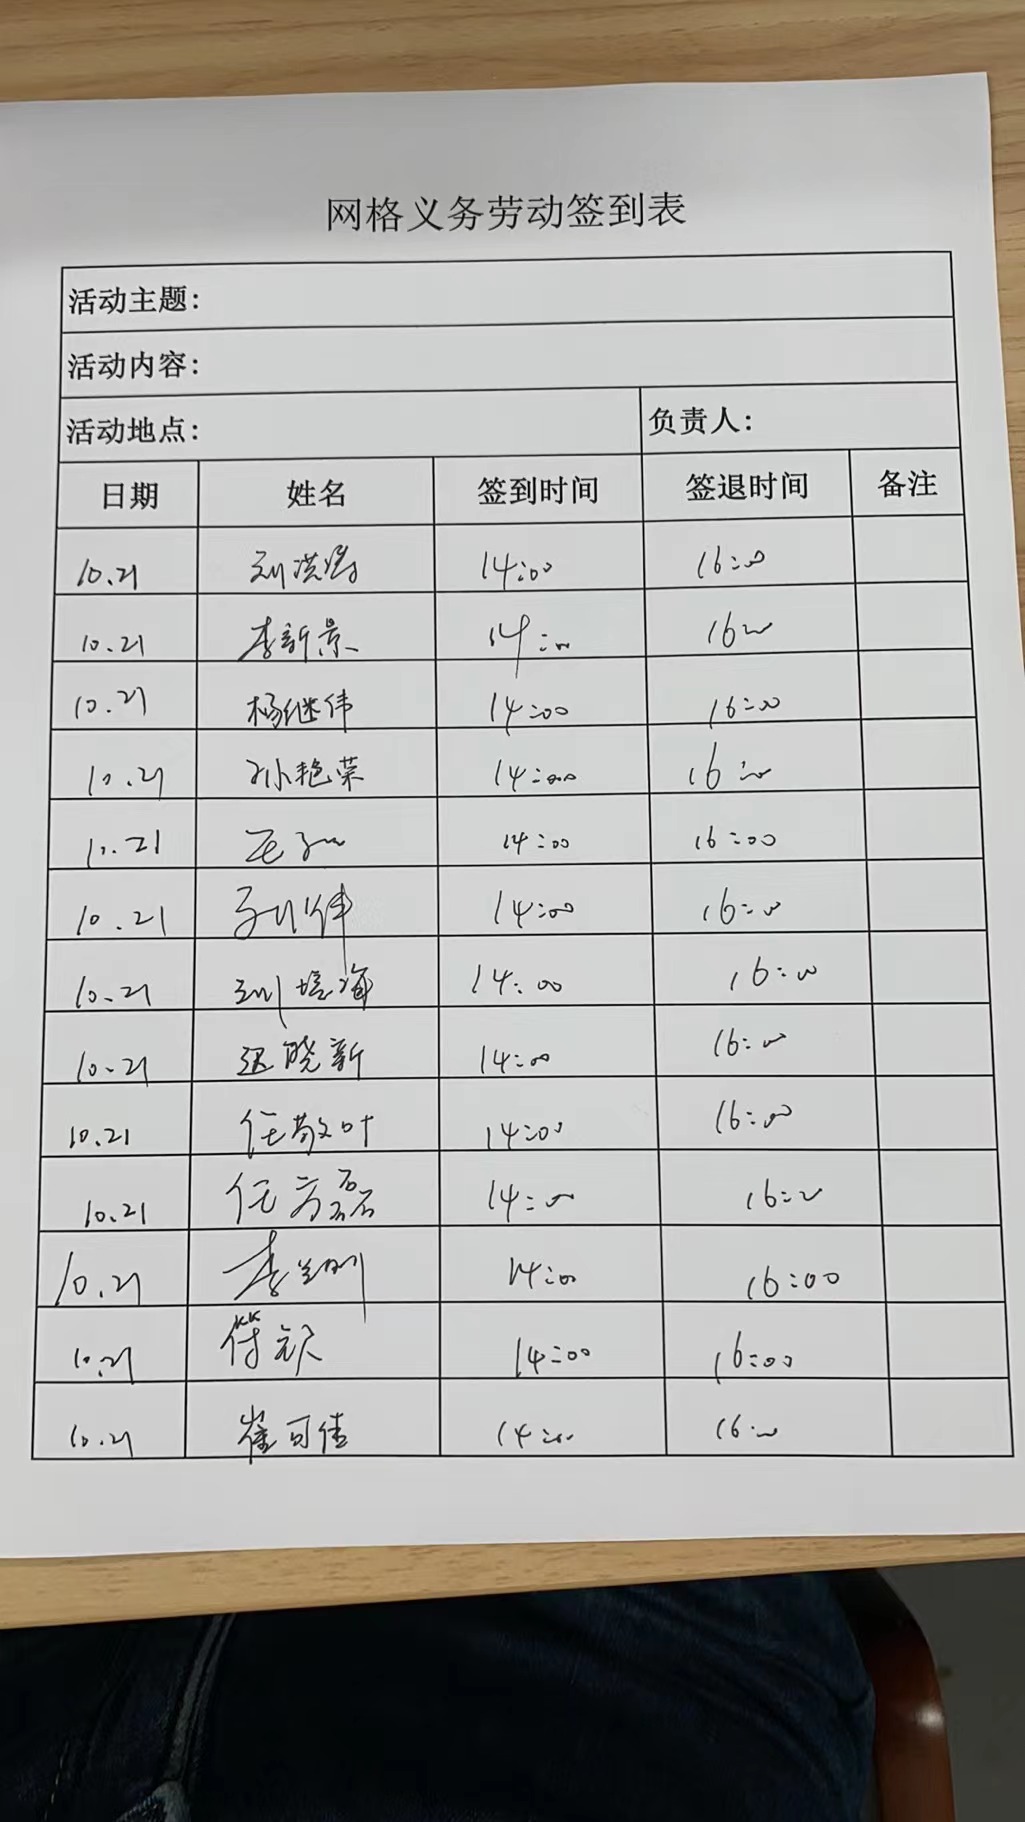 网格义务劳动签到表
活动主题：
活动内容：
活动地点： 负责人：
日期 姓名 签到时间 签退时间 备注
10.21 刘洪涛 14:00 16:00
10.21 李新景 14:00 16:00
10.21 杨继伟 14:00 16:00
10.21 孙艳荣 14:00 16:00
10.21 14:00 16:00
10.21 14:00 16:00
10.21 刘培海 14:00 16:00
10.21 迟晓新 14:00 16:00
10.21 任敬叶 14:00 16:00
10.21 任方磊 14:00 16:00
10.21 李 14:00 16:00
10.21 符 14:00 16:00
10.21 崔可佳 14:00 16:00